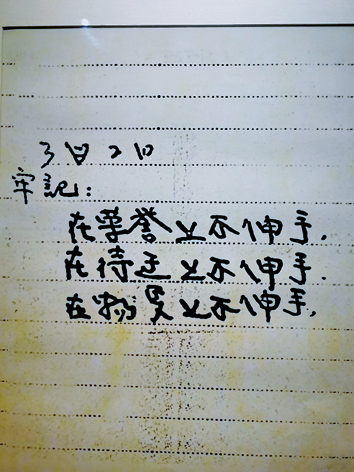 3月2日
牢記:
在荣誉上不伸手.
在待迂上不伸手.
在物质上不伸手.